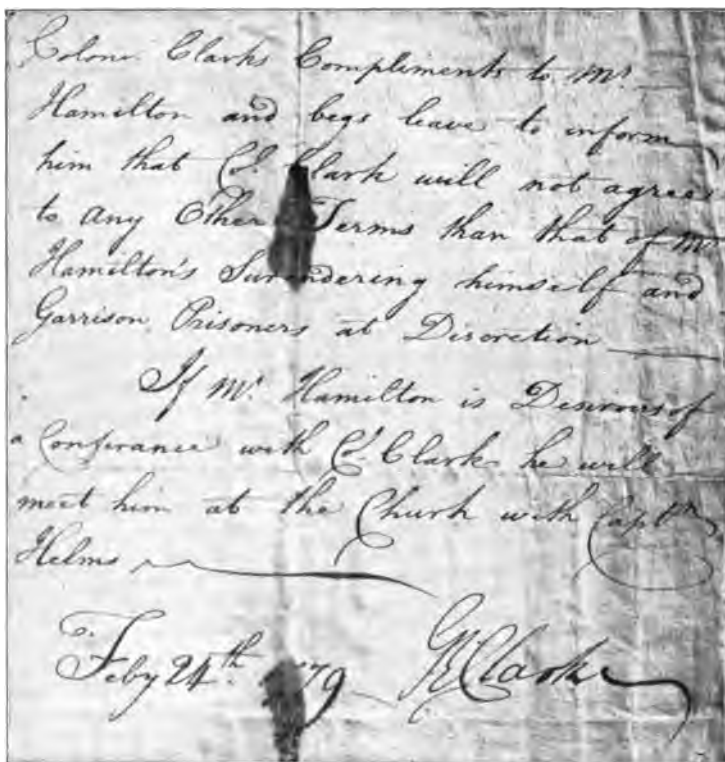 Colone Clarks Compliments to Mr.
Hamilton and begs leave to inform
him that Col. Clark will not agree
to any Other Terms than that of Mr
Hamilton's Surendering himself and
Garrison Prisoners at Discretion
If Mr. Hamilton is Desirous of
a Conferance with Col. Clark he will
meet him at the Church with Captn
Helms
Feby 24th. 79
G R Clark